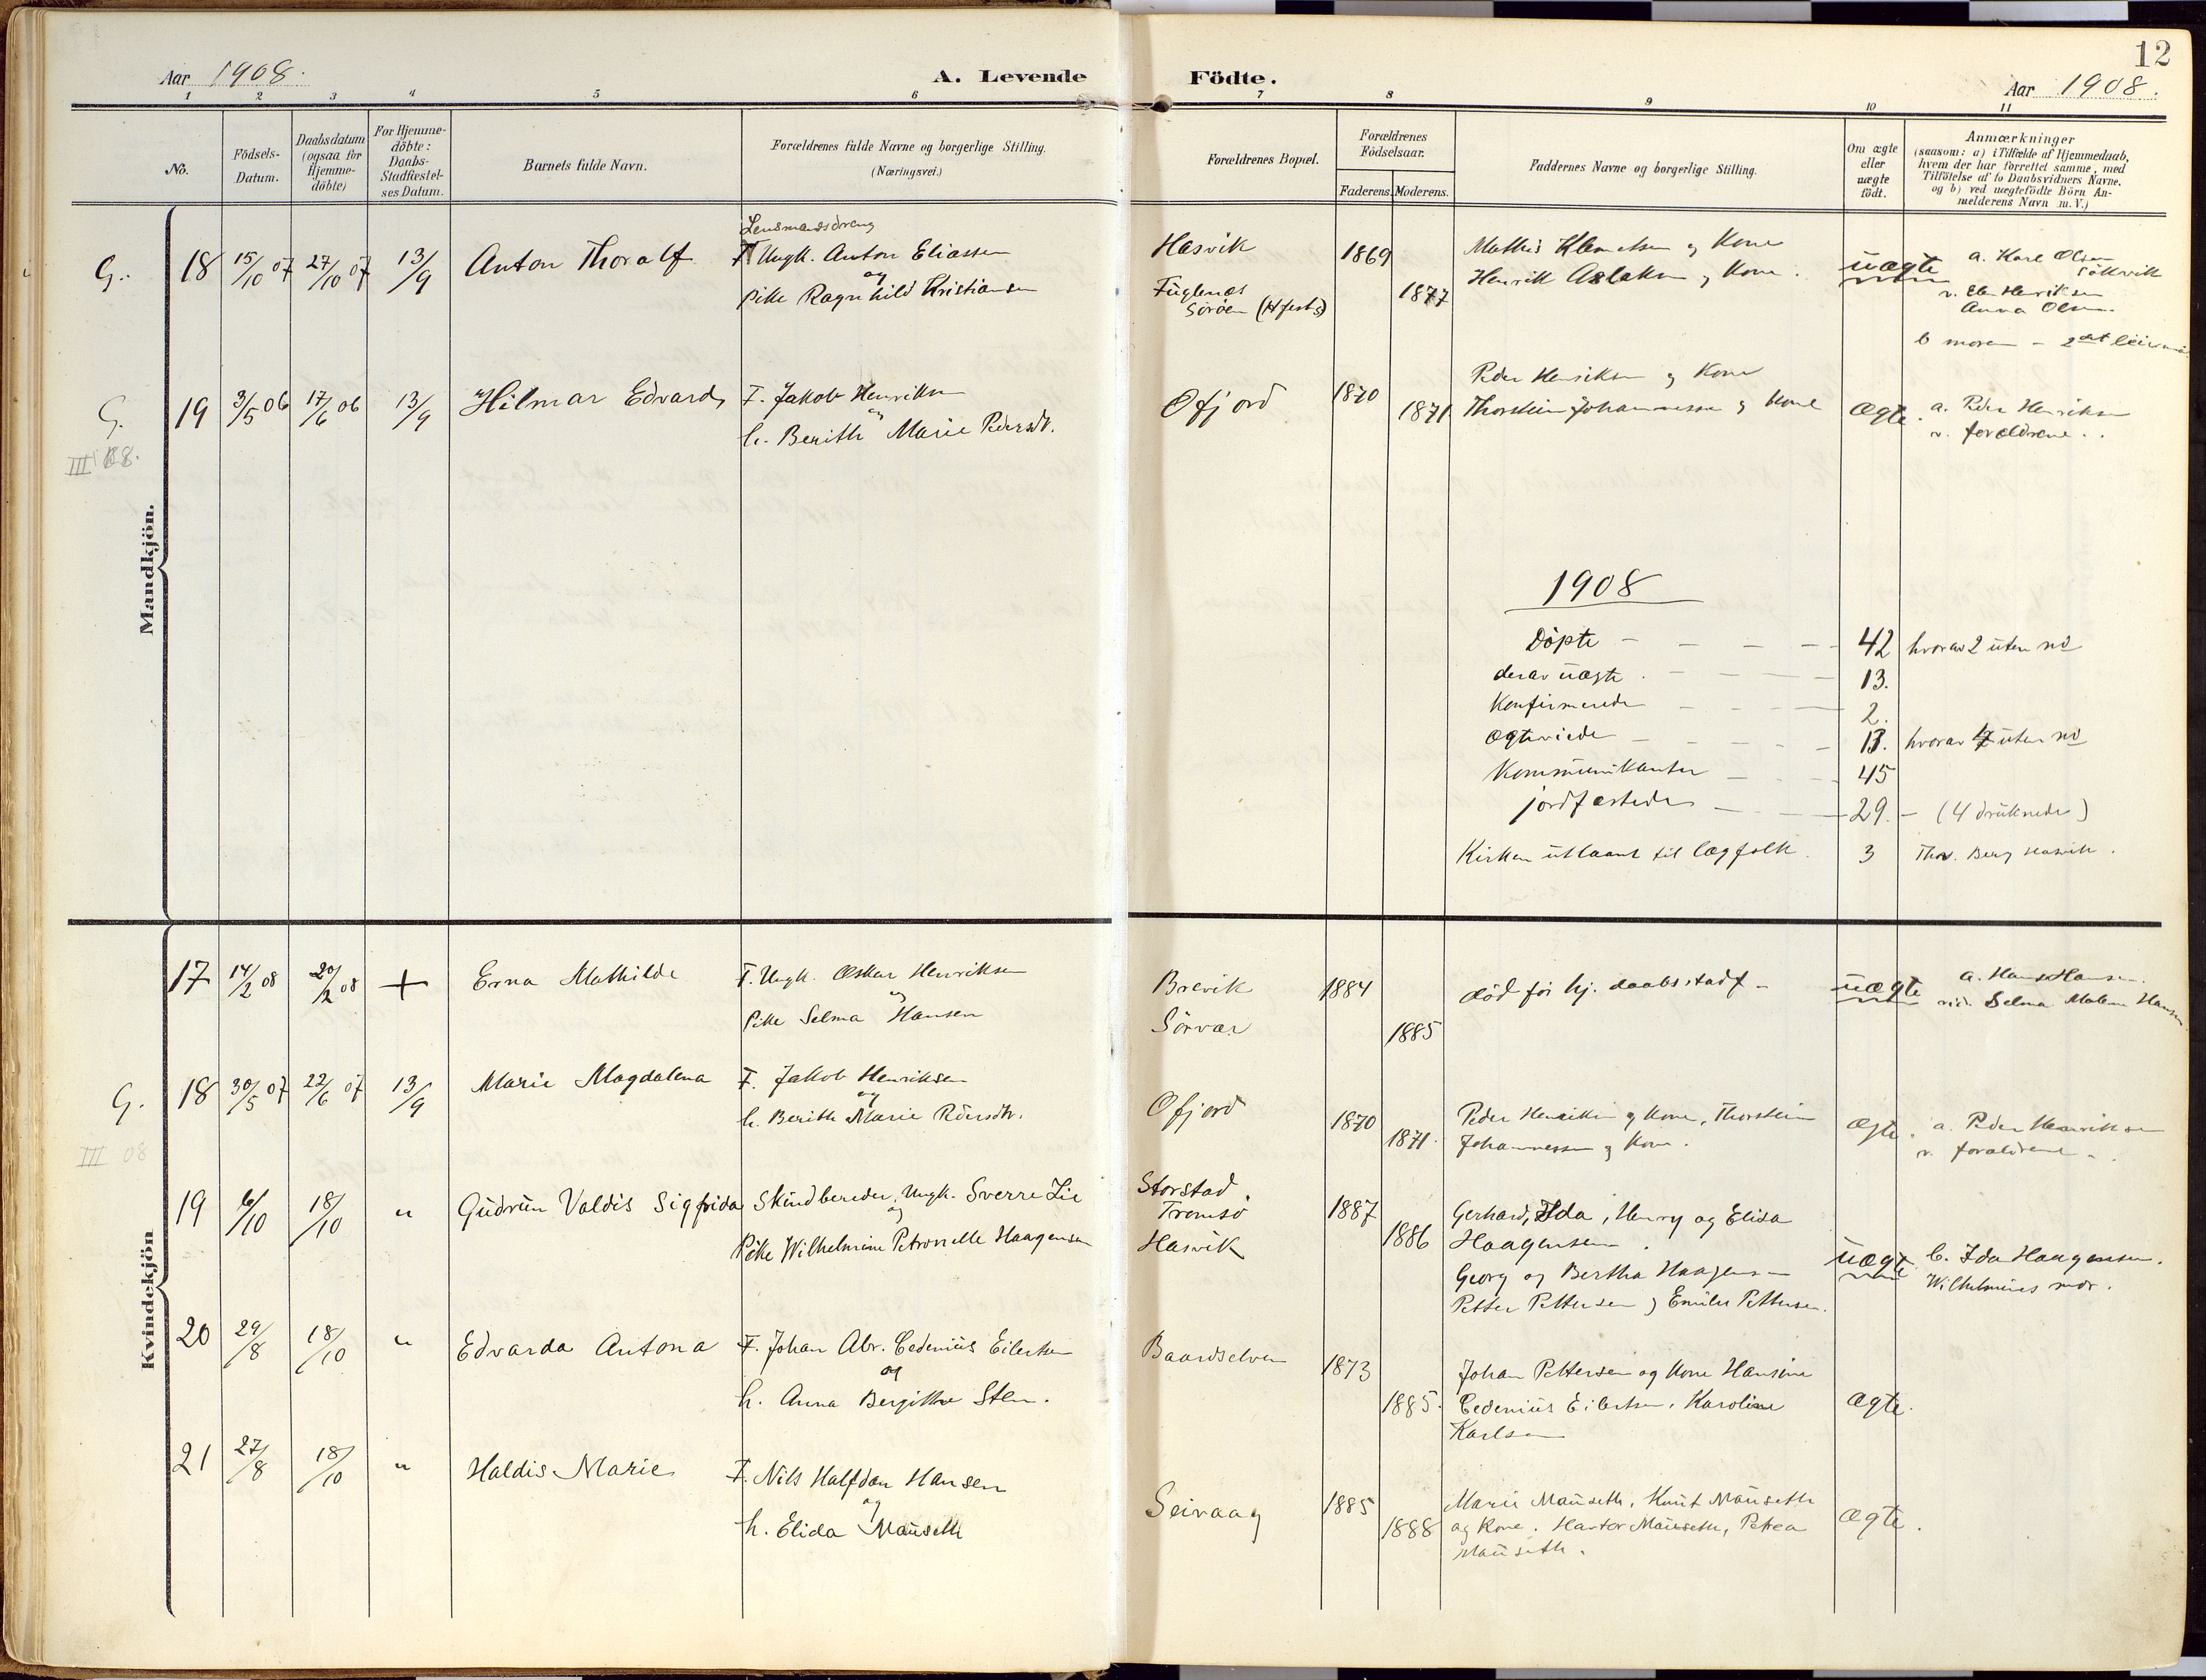 12
Aar 1908. A. Levende Födte. Aar 1908.
1 2 3 4 5 6 7 8 9 10 11
No.
Födsels-
Datum.
Daabsdatum
(ogsaa for
Hjemme-
döbte)
For Hjemme-
döbte:
Daabs-
Stadfæstel-
ses Datum.
Barnets fulde Navn.
Forældrenes fulde Navne og borgerlige Stilling.
(Næringsvei.)
Forældrenes Bopæl.
Forældrenes
Födselsaar.
Faderens. Moderens.
Faddernes Navne og borgerlige Stilling.
Om ægte
eller
uægte
födt.
Anmærkninger
(saasom: a) i Tilfælde af Hjemmedaab,
hvem der har forrettet samme, med
Tilföielse af to Daabsvidners Navne,
og b) ved uægtefödte Börn An-
melderens Navn m. V.)
Mandkjön.
G. 18 15/10 07 27/10 07 13/9 Anton Thoralf
Lensmandsdreng
F. Ungk. Anton Eliassen
og
Pike Ragnhild Kristiansen
Hasvik
Fuglenes
Söröen
1869
1877
Mathis Klemetsen og Kone
Henrik Aslaksen og Kone.
uægte
a. Karl Olsen
v. Henriksen
Anna Olsen.
b moren
G. 19 3/5 06 17/6 06 13/9 Hilmar Edvard
III 08.
F. Jakob Henriksen
og
h. Berith Marie Pedersdt.
Ofjord
1870
1871
Peder Henriksen og Kone
Thorstein Johannessen og Kone
ægte.
a. Peder Henriksen
v. forældrene.
1908
Döpte - - - - 42 hvorav 2 uten no
derav uægte - - - 13.
Konfirmerede - - - 2.
Ægteviede - - - - 13. hvorav 4 uten no
Kommunikanter - - - 45
jordfæstede - - - 29. - (4 druknede)
Kirken utlaant til lægfolk. 3 Thor. Berg Hasvik.
Kvindekjön
17 14/2 08 20/2 08 + Erna Mathilde
F. Ungk. Oskar Henriksen
og
Pike Selma Hansen
Brevik
Sörvær
1884
1885
död för hj. daabsstadf -
uægte
a. Hans Hansen.
vid. Selma Malene Hansen
G. 18 30/5 07 22/6 07 13/9 Marie Magdalena
III 08
F. Jakob Henriksen
og
h. Berith Marie Pedersdtr.
Ofjord
1870
1871.
Peder Henriksen og Kone, Thorstein
Johannessen og Kone.
ægte.
a. Peder Henriksen
v. forældrene.
19 6/10 18/10 " Gudrun Valdis Sigfrida
Skindbereder, Ungk. Sverre Lie
og
Pike Wilhelmine Petronelle Haagensen
Storstad.
Tromsö
Hasvik
1887
1886
Gerhard, Ida, Henry og Elida
Haagensen.
Georg og Bertha Haagensen
Petter Pettersen og Emilie Pettersen.
uægte
b. Ida Haagensen.
Wilhelmines mor.
20 29/8 18/10 " Edvarda Antona
F. Johan Abr. Cedenius Eilertsen
og
h. Anna Bergitte Sten.
Baardselven
1873
1885.
Johan Pettersen og Kone Hansine
Cedenius Eilertsen, Karoline
Karlsen
ægte.
21 27/8 18/10 " Haldis Marie
F. Nils Halfdan Hansen
og
h. Elida Mauseth
Seivaag
1885
1888
Marie Mauseth, Knut Mauseth
og Kone. Mauseth, Petrea
Mauseth.
ægte.